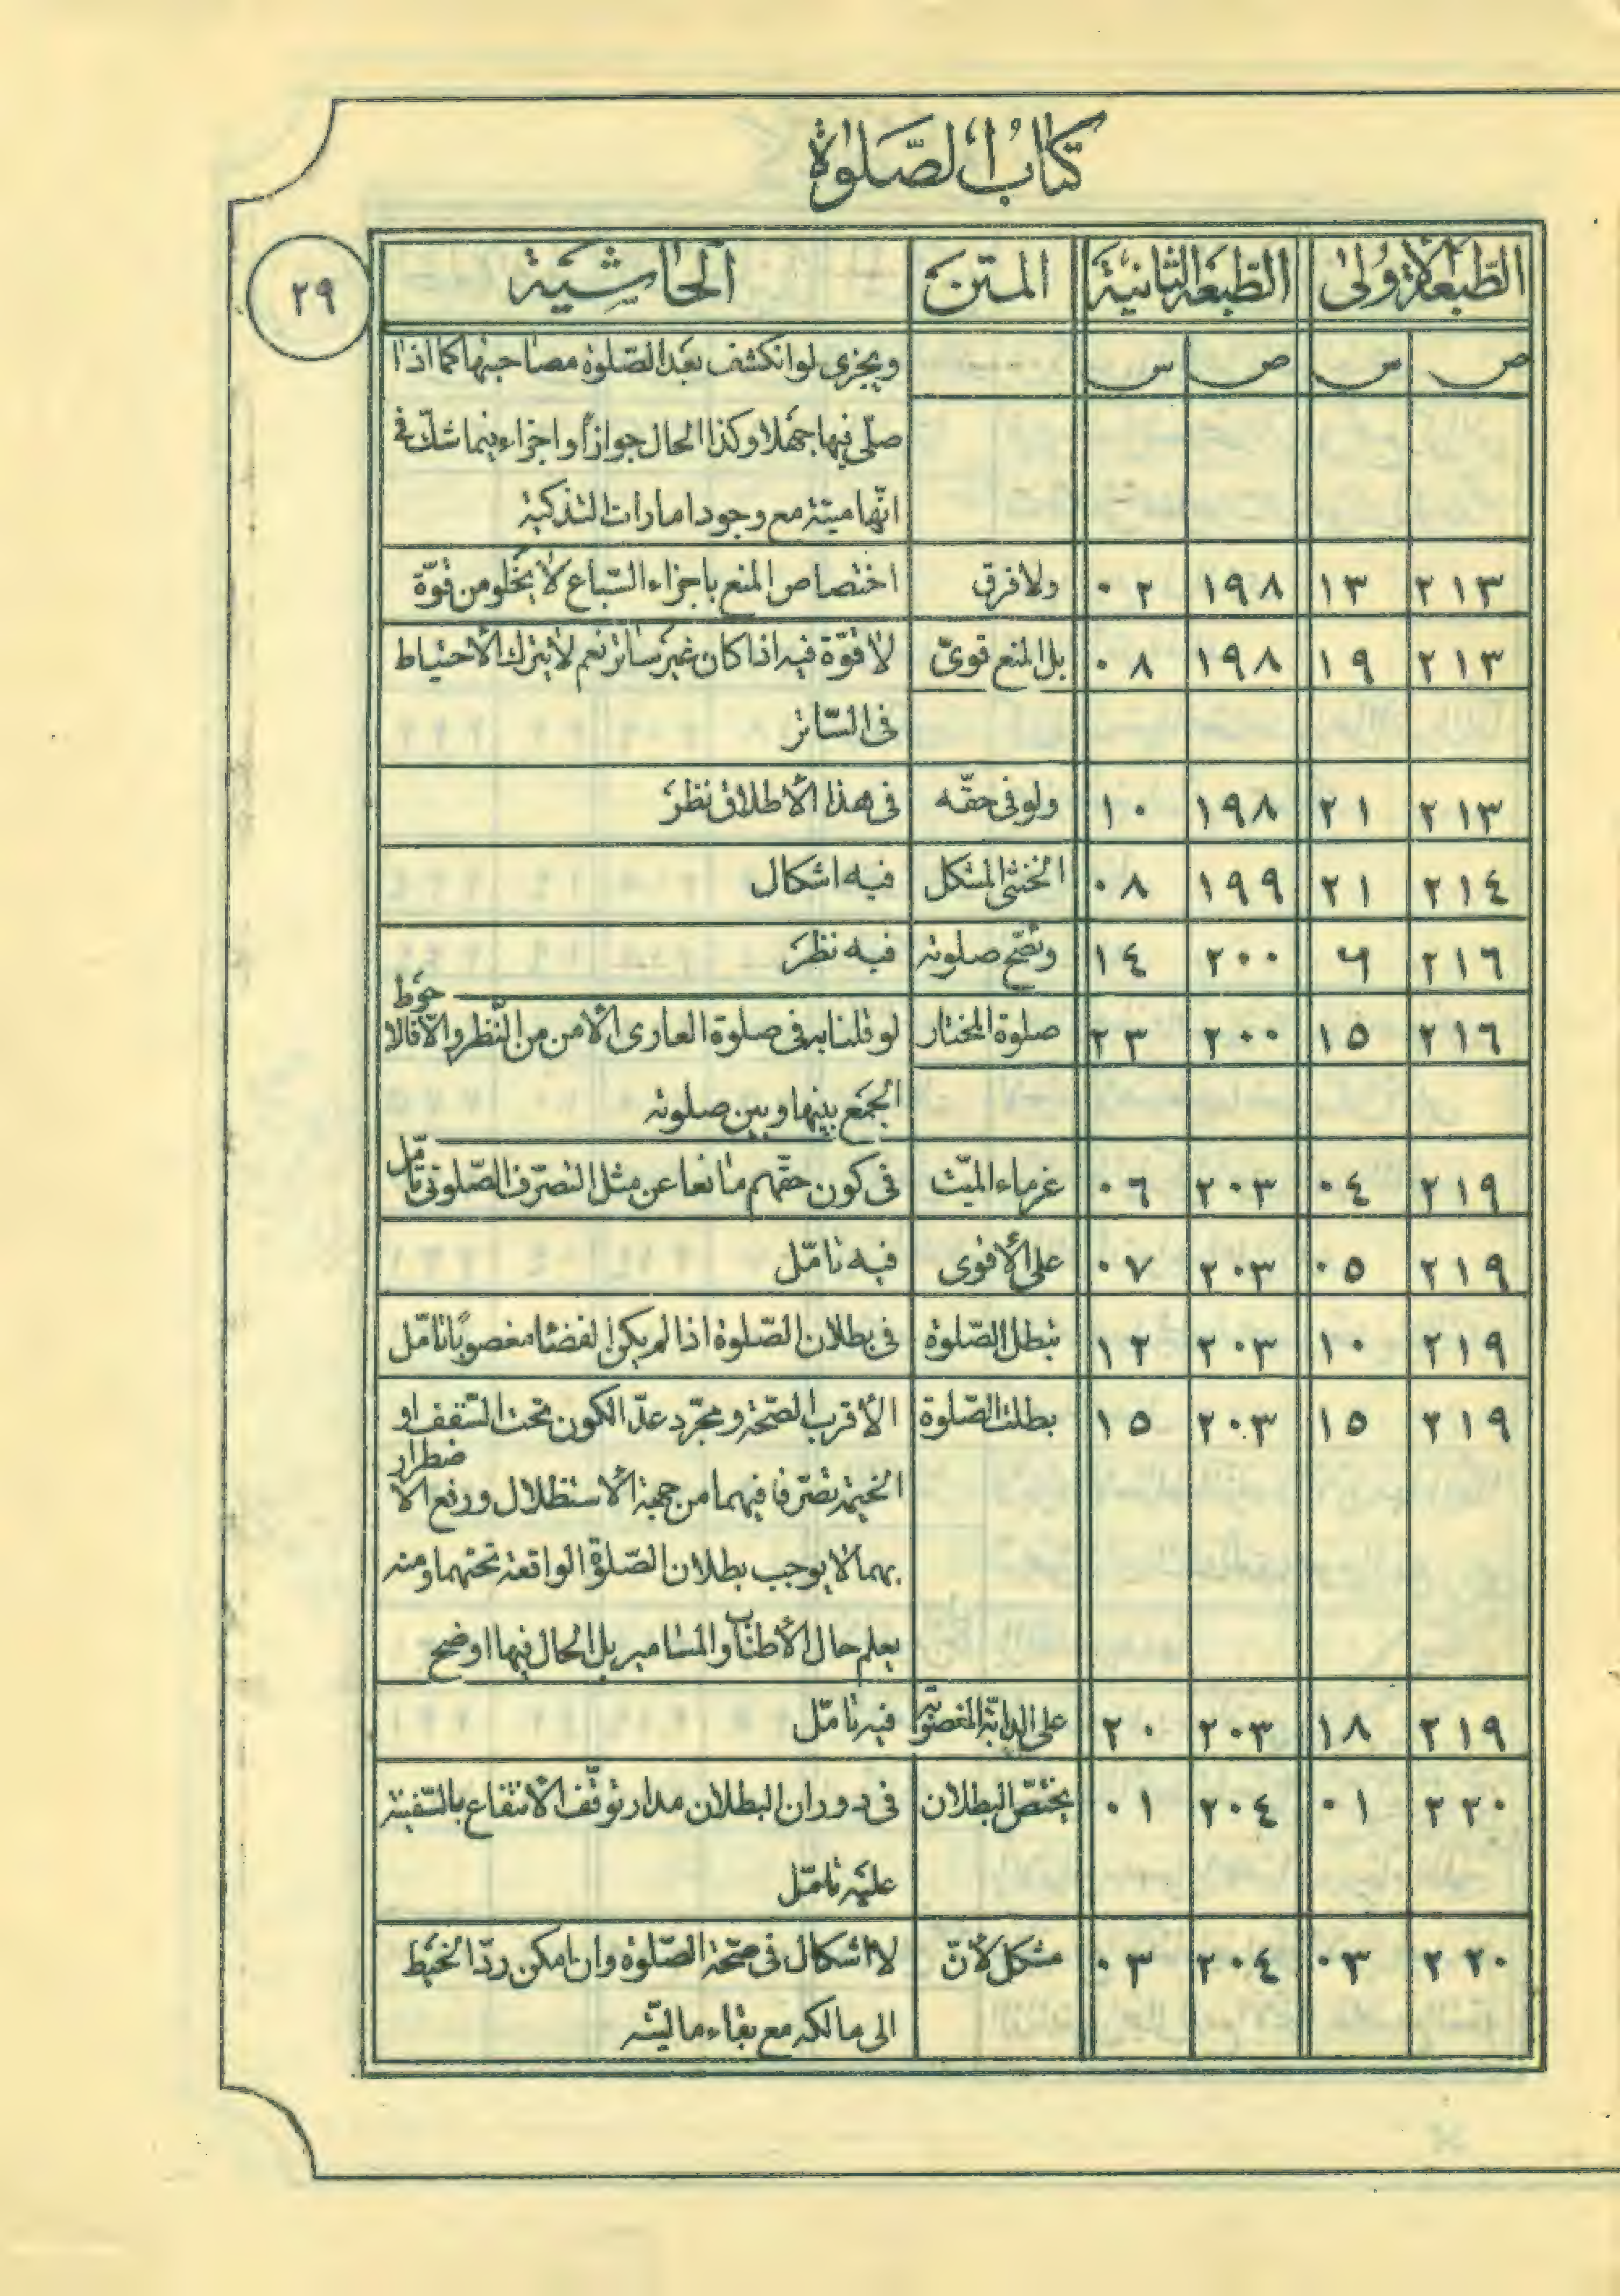 كتاب الصّلوة
الطّبعة الأولى الطّبعة الثانية المتن الحاشية
٢٩
ص س ص س ويجزى لو انكشف بعد الصّلوة مصاحبتها كما اذا
صلّى فيها جهلا وكذا الحال جوازاً واجزاء فيما شكّ فى
انّها ميتة مع وجود امارات التذكية
٢١٣ ١٣ ١٩٨ ٠٢ ولا فرق اختصاص المنع باجزاء السّباع لا يخلو من قوّة
٢١٣ ١٩ ١٩٨ ٠٨ بل المنع قوىّ لا قوّة فيه اذا كان غير ساتر نعم لا يترك الأحتياط
فى السّاتر
٢١٣ ٢١ ١٩٨ ١٠ ولو فى حقّه فى هذا الأطلاق نظر
٢١٤ ٢١ ١٩٩ ٠٨ الخنثى المشكل فيه اشكال
٢١٦ ٦ ٢٠٠ ١٤ وتصّح صلوته فيه نظر
٢١٦ ١٥ ٢٠٠ ٢٣ صلوة المختار لو قلنا به فى صلوة العارى الأمن من النّظر والّا فالاحوط
الجمع بينها وبين صلوته
٢١٩ ٠٤ ٢٠٣ ٠٦ غرماء الميّت فى كون حقّهم مانعا عن مثل التصرّف الصّلوتى تأمّل
٢١٩ ٠٥ ٢٠٣ ٠٧ على الأقوى فيه تامّل
٢١٩ ١٠ ٢٠٣ ١٢ تبطل الصّلوة فى بطلان الصّلوة اذا لم يكن الفضاء مغصوبًا تامّل
٢١٩ ١٥ ٢٠٣ ١٥ بطلت الصّلوة الأقرب الصّحة ومجرّد عدّ الكون تحت السّقف او
الخيمة تصرّفا فيهما من جهة الأستظلال ورفع الاضطرار
بهما لا يوجب بطلان الصّلوة الواقعة تحتهما ومنه
يعلم حال الأطناب والمسامير بل الحال فيها اوضح
٢١٩ ١٨ ٢٠٣ ٢٠ على الدابّة المغصوبة فيه تامّل
٢٢٠ ٠١ ٢٠٤ ٠١ يختصّ البطلان فى دوران البطلان مدار توقّف الأنتفاع بالسّفينة
عليه تامّل
٢٢٠ ٠٣ ٢٠٤ ٠٣ مشكل لأنّ لا اشكال فى صحّة الصّلوة وان امكن ردّ الخيط
الى مالكه مع بقاء ماليّته